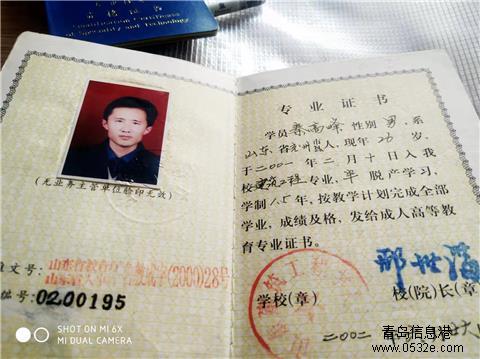 专业技
资格证书
Qualification Certificate
of Speciality and Technology
(无业务主管单位验印无效)
文号:山东省教育厅
(2000)28号
编号:0200195
专业证书
学员秦高峰性别男,系
山东省 人,现年26岁,
于二〇〇一年二月十日入我
校建筑工程专业,半脱产学习,
学制1.5年,按教学计划完成全部
学业,成绩及格,发给成人高等教
育专业证书。
学校(章)
校(院)长(章)
二〇〇二年
SHOT ON MI 6X
MI DUAL CAMERA
青岛信息港
www.0532e.com